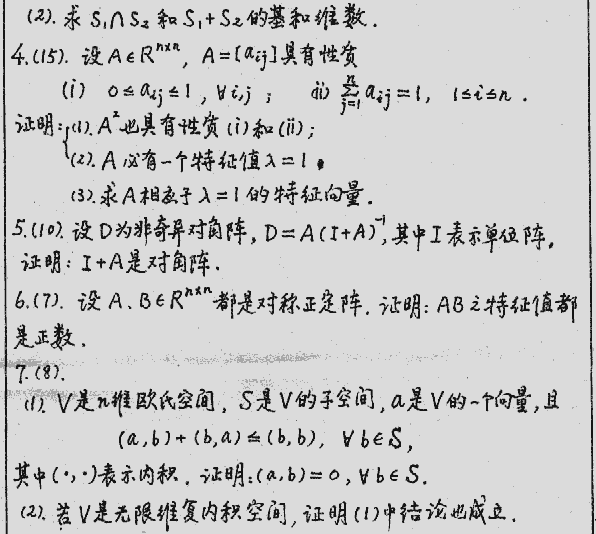 (2). 求 S₁∩S₂ 和 S₁+S₂ 的基和维数.
4.(15). 设 A∈Rⁿˣⁿ, A=[aᵢⱼ]具有性质
(i) 0≤aᵢⱼ≤1, ∀i,j ; (ii) ∑ⱼ₌₁ⁿ aᵢⱼ=1, 1≤i≤n.
证明:{(1). A²也具有性质(i)和(ii);
(2). A 必有一个特征值λ=1.
(3). 求A相应于λ=1的特征向量.
5.(10). 设D为非奇异对角阵, D=A(I+A)⁻¹, 其中I表示单位阵.
证明: I+A是对角阵.
6.(7). 设 A、B∈Rⁿˣⁿ 都是对称正定阵. 证明: AB之特征值都
是正数.
7.(8).
(1). V是n维欧氏空间, S是V的子空间, a是V的一个向量, 且
(a,b)+(b,a)≤(b,b), ∀b∈S,
其中(·,·)表示内积. 证明:(a,b)=0, ∀b∈S.
(2). 若V是无限维复内积空间, 证明(1)中结论也成立.